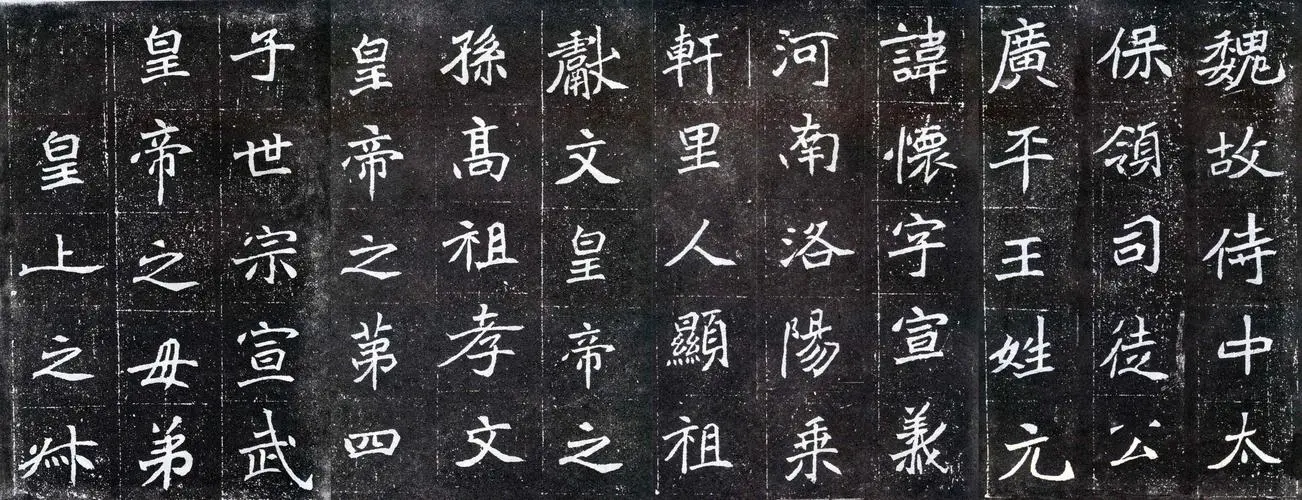 魏故侍中太
保領司徒公
廣平王姓元
諱懷字宣義
河南洛陽乗
軒里人顯祖
獻文皇帝之
孫髙祖孝文
皇帝之第四
子世宗宣武
皇帝之母弟
皇上之叔